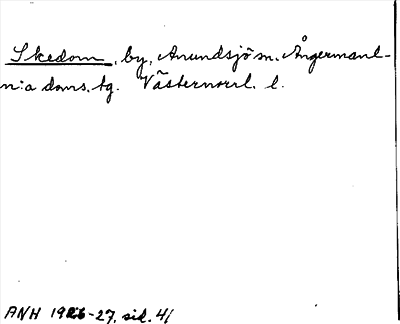 Skedom, by, Anundsjö sn. Ångermanl-
n:a doms. tg. Västernorrl. l.
ANH 1926-27, sid. 41